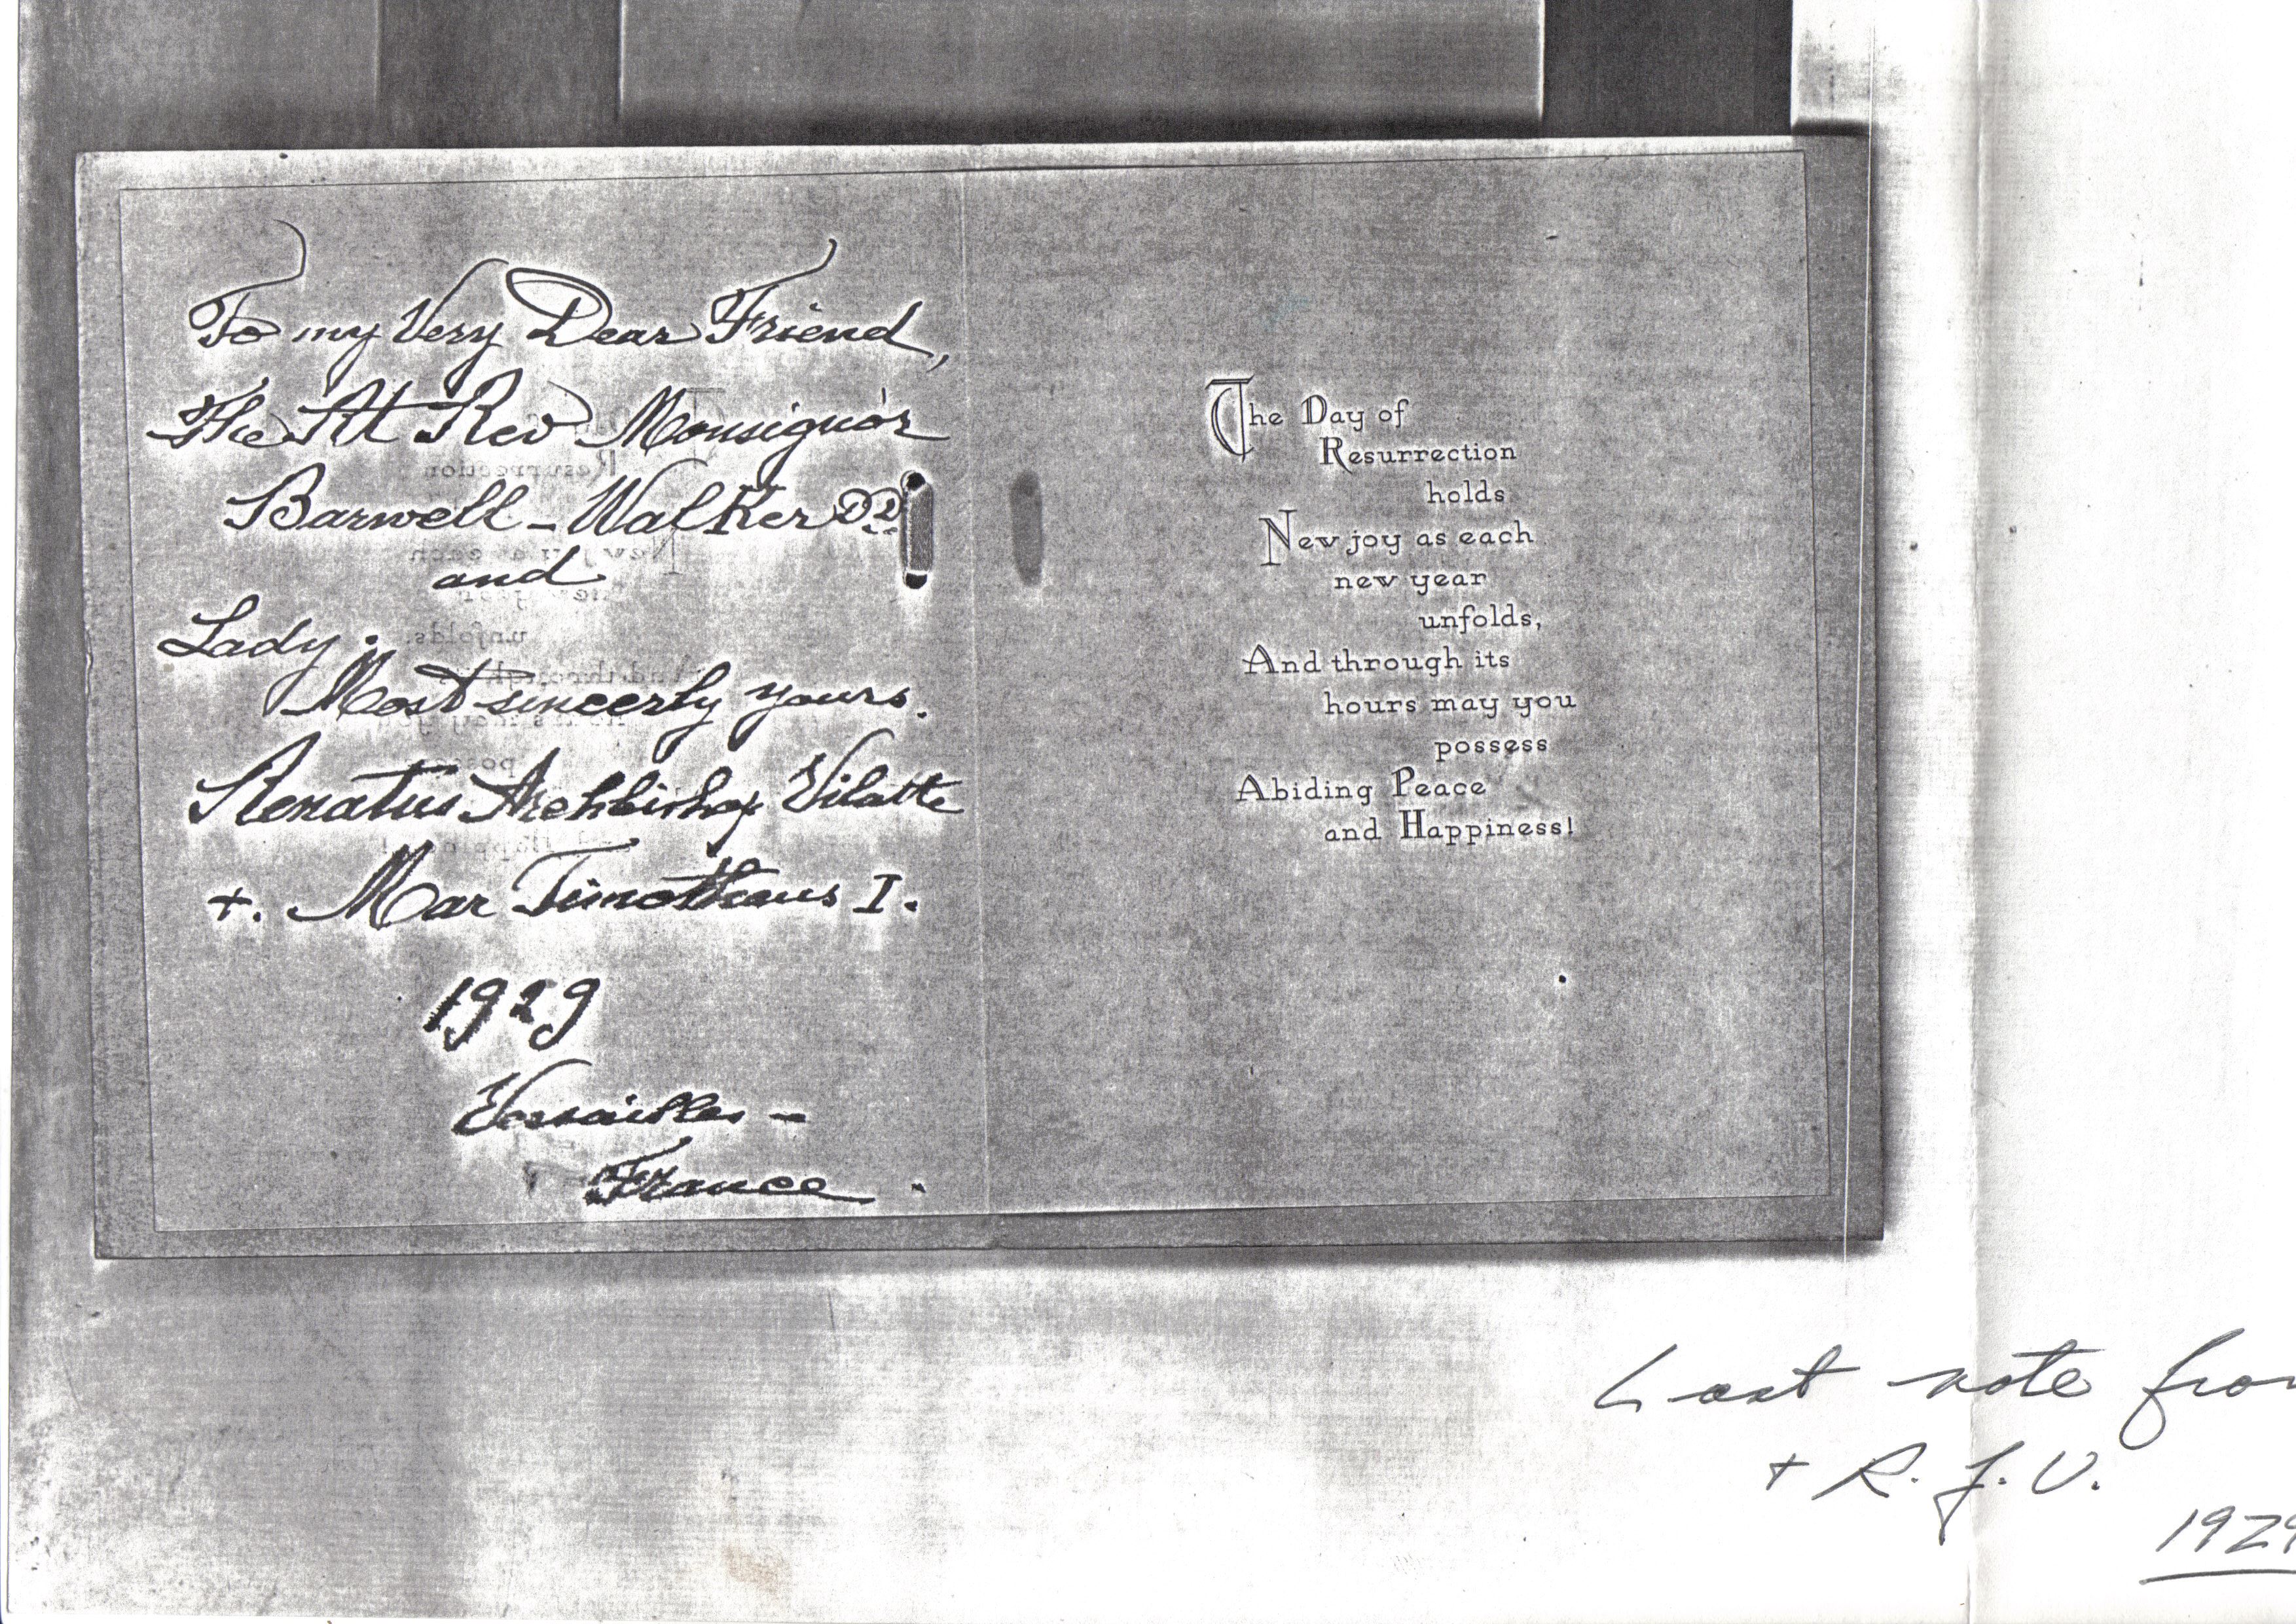 To my Very Dear Friend,
The Rt Rev Monsignor
Barwell-Walker DD
and
Lady.
Most sincerly yours.
Renatus Archbishop Vilatte
+. Mar Timotheus I.
1929
Versailles -
France.
The Day of
Resurrection
holds
New joy as each
new year
unfolds,
And through its
hours may you
possess
Abiding Peace
and Happiness!
Last note from
+ R. J. V.
1929